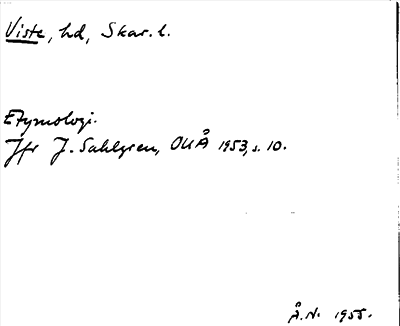 Viste, hd, Skar. l.
Etymologi.
Jfr J. Sahlgren, OUÅ 1953, s. 10.
Å. N. 1955.